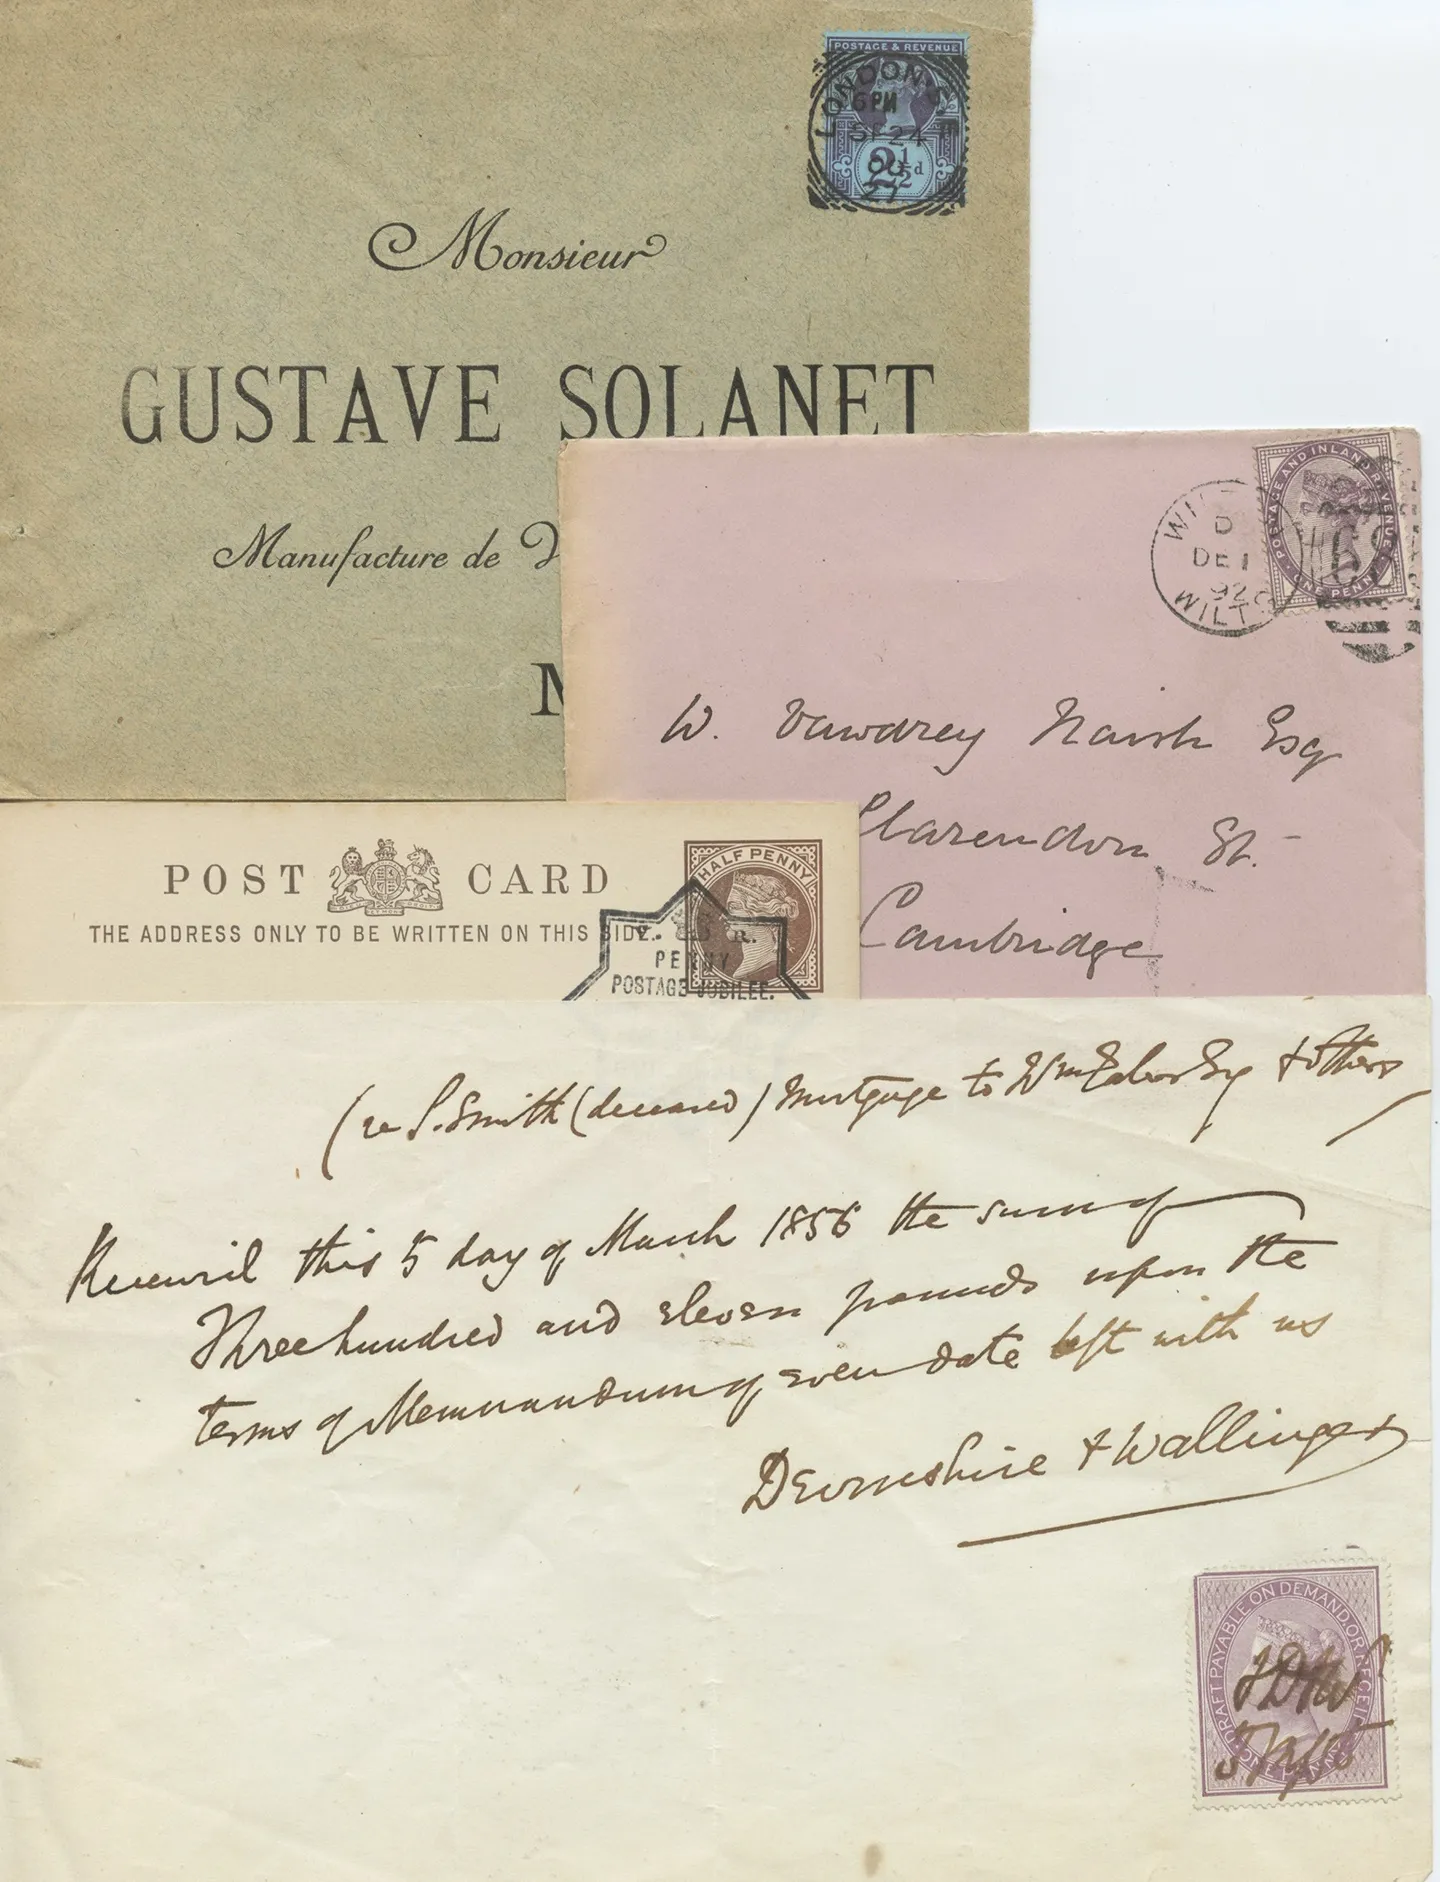 POSTAGE & REVENUE
LONDON S.E
6 PM
SP 24
2½d
Monsieur
GUSTAVE SOLANET
Manufacture de
POSTAGE AND INLAND REVENUE
ONE PENNY
D
DE 1
92
WILTS
W. Vawdrey Naish Esq
Clarendon St.
Cambridge
POST CARD
THE ADDRESS ONLY TO BE WRITTEN ON THIS SIDE.
HALF PENNY
V. R.
PENNY
POSTAGE JUBILEE.
(re S. Smith (deceased) Mortgage to Wm Esq & others
Received this 5 day of March 1856 the sum of
Three hundred and eleven pounds upon the
terms of Memorandum of even date left with us
Devonshire & Wallinger
DRAFT PAYABLE ON DEMAND, OR RECEIPT
ONE PENNY